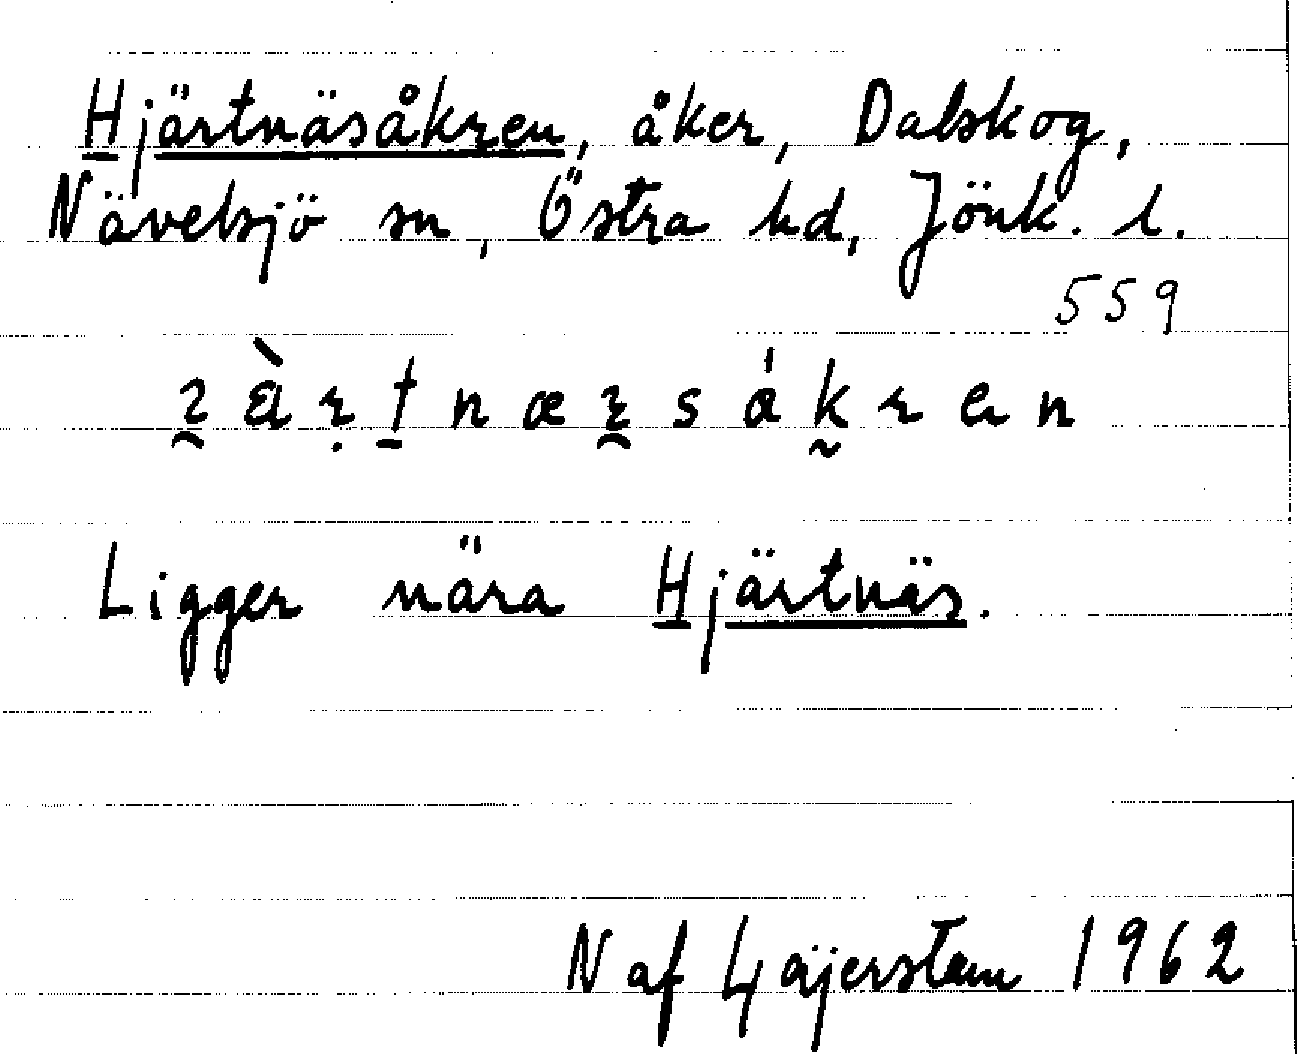 Hjärtnäsåkren, åker, Dalskog,
Nävelsjö sn, Östra hd, Jönk. l.
559
Ligger nära Hjärtnäs.
N af Gejerstam 1962